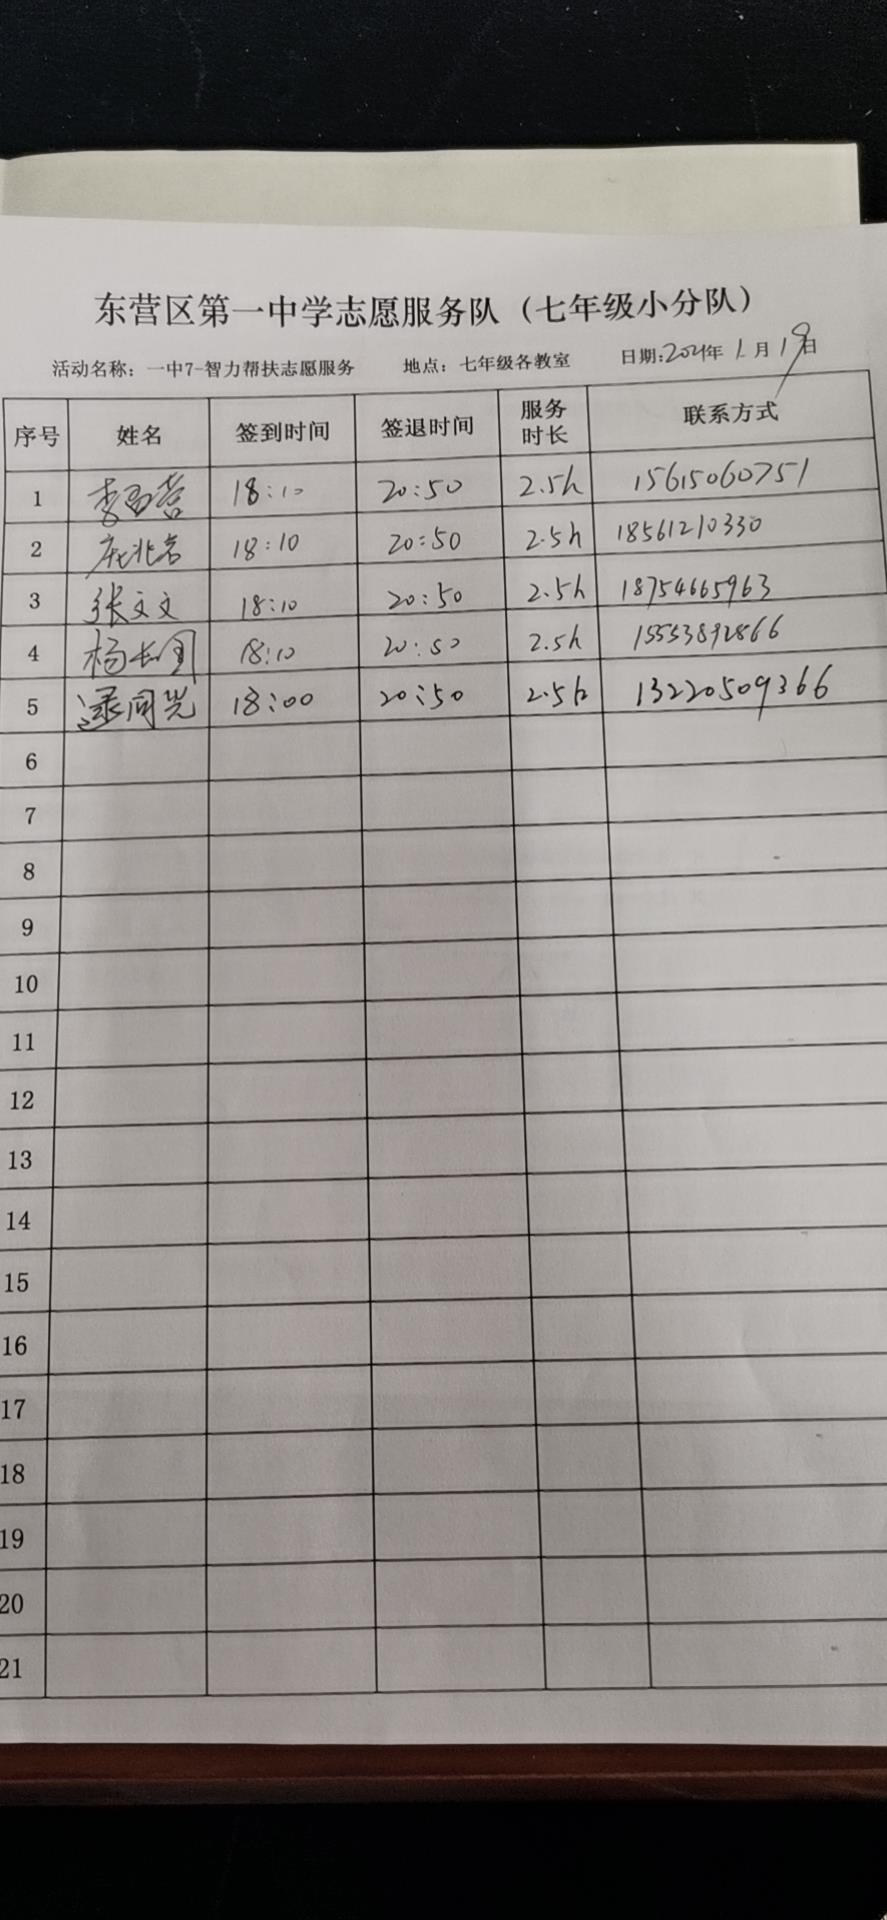 东营区第一中学志愿服务队（七年级小分队）
活动名称：一中7-智力帮扶志愿服务 地点：七年级各教室 日期:2021年 1月19日
序号 姓名 签到时间 签退时间 服务时长 联系方式
1 18:10 20:50 2.5h 15615060751
2 18:10 20:50 2.5h 18561210330
3 张文文 18:10 20:50 2.5h 18754665963
4 18:10 20:50 2.5h 15553892866
5 18:00 20:50 2.5h 13220509366
6
7
8
9
10
11
12
13
14
15
16
17
18
19
20
21